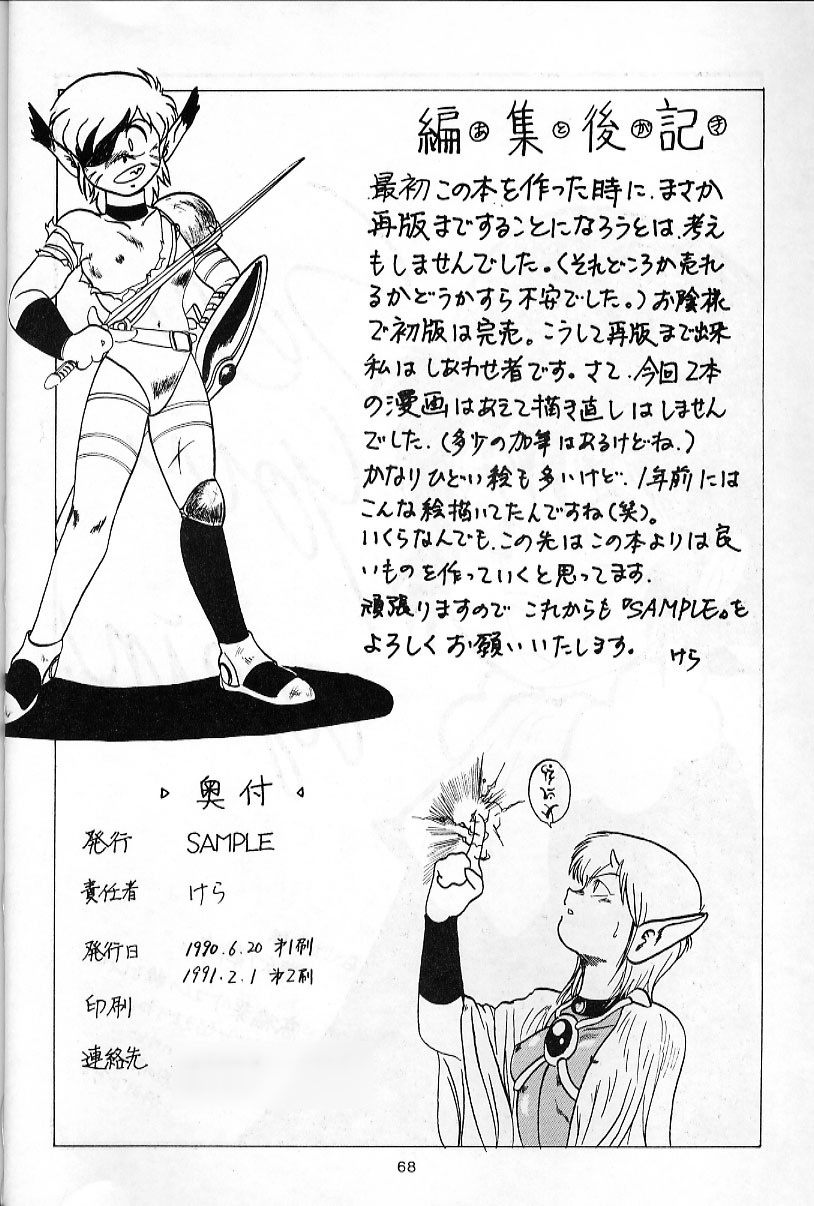 編集後記
あとがき
最初この本を作った時に、まさか
再版まですることになろうとは、考え
もしませんでした。(それどころか売れ
るかどうかすら不安でした。)お陰様
で初版は完売。こうして再版まで出来
私はしあわせ者です。さて、今回2本
の漫画はあえて描き直しはしません
でした。(多少の加筆はあるけどね、)
かなりひどい絵も多いけど、1年前には
こんな絵描いてたんですね(笑)。
いくらなんでも、この先はこの本よりは良
いものを作っていくと思ってます。
頑張りますので これからも『SAMPLE』を
よろしくお願いいたします。
けら
▷ 奥付 ◁
発行 SAMPLE
責任者 けら
発行日 1990.6.20 第1刷
1991.2.1 第2刷
印刷
連絡先
68